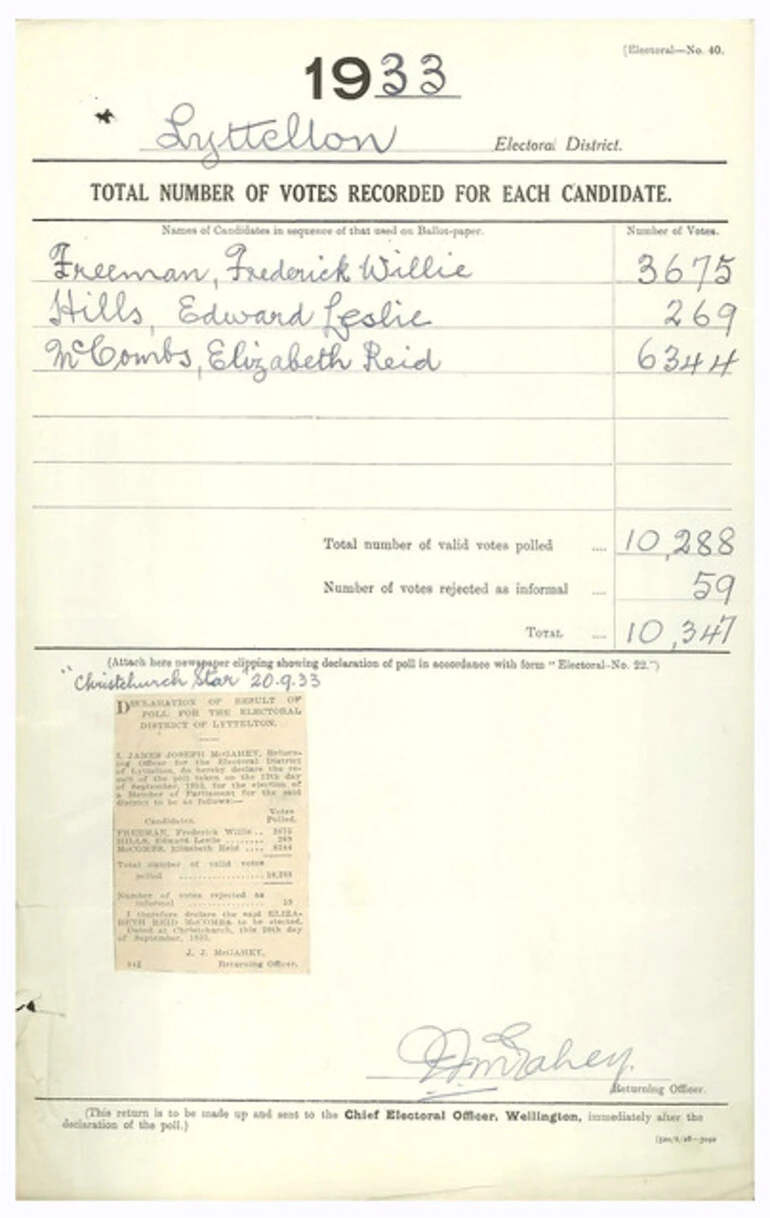 [Electoral—No. 40.
1933
Lyttelton Electoral District.
TOTAL NUMBER OF VOTES RECORDED FOR EACH CANDIDATE.
Names of Candidates in sequence of that used on Ballot-paper. Number of Votes.
Freeman, Frederick Willie 3675
Hills, Edward Leslie 269
McCombs, Elizabeth Reid 6344
Total number of valid votes polled .... 10,288
Number of votes rejected as informal .... 59
TOTAL .... 10,347
(Attach here newspaper clipping showing declaration of poll in accordance with form "Electoral-No. 22.")
"Christchurch Star" 20.9.33
DECLARATION OF RESULT OF
POLL FOR THE ELECTORAL
DISTRICT OF LYTTELTON.
I, JAMES JOSEPH McGAHEY, Return-
ing Officer for the Electoral District
of Lyttelton, do hereby declare the re-
sult of the poll taken on the 13th day
of September, 1933, for the election of
a Member of Parliament for the said
district to be as follows:—
Votes
Candidates. Polled.
FREEMAN, Frederick Willie .. 3675
HILLS, Edward Leslie ........ 269
McCOMBS, Elizabeth Reid .... 6344
Total number of valid votes
polled ................ 10,288
Number of votes rejected as
informal ................ 59
I therefore declare the said ELIZA-
BETH REID McCOMBS to be elected.
Dated at Christchurch, this 20th day
of September, 1933.
J. J. McGAHEY,
Returning Officer.
JJMcGahey.
Returning Officer.
(This return is to be made up and sent to the Chief Electoral Officer, Wellington, immediately after the
declaration of the poll.)